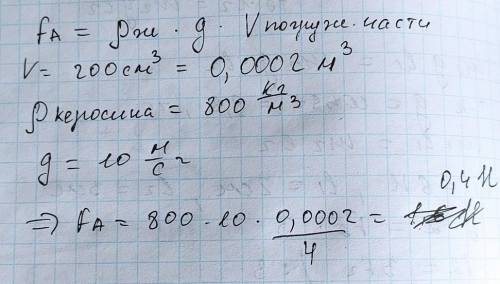 fA = ρж · g · V погруж. части
V = 200 см³ = 0,0002 м³
ρ керосина = 800 кг/м³
g = 10 м/с²
0,4 Н
⇒ fA = 800 · 10 · 0,0002/4 =